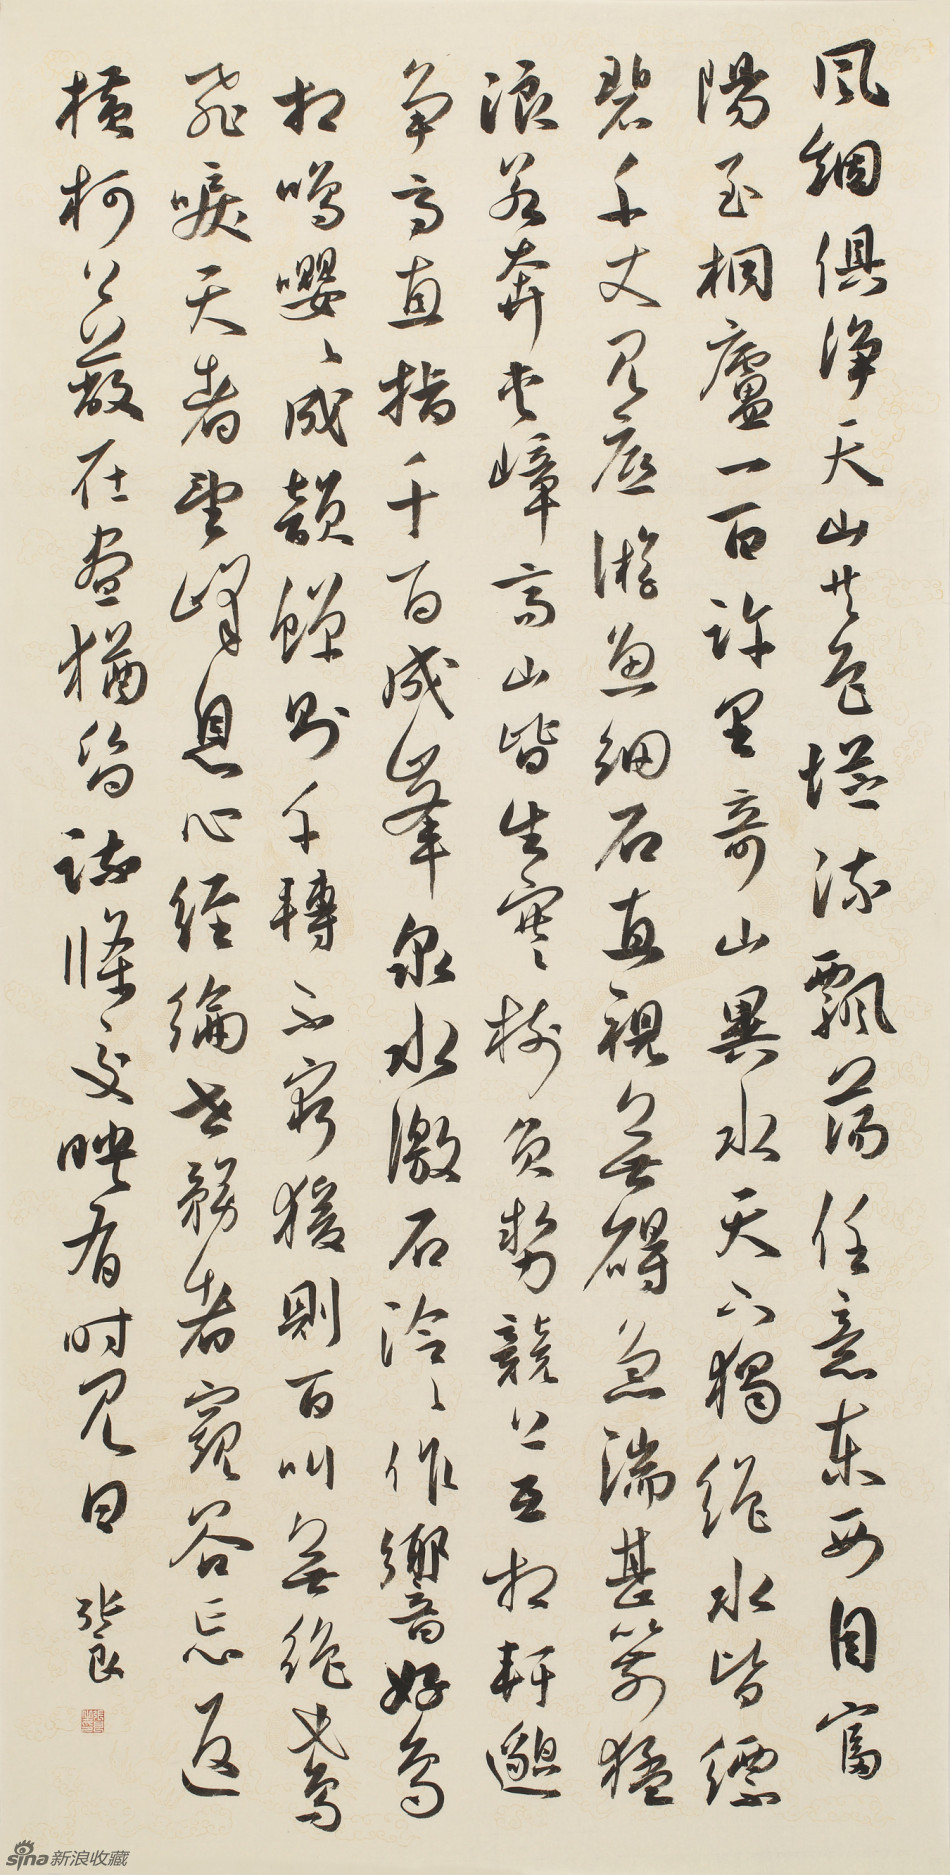 風烟俱淨天山共色從流飄蕩任意東西自富
陽至桐廬一百許里奇山異水天下獨絕水皆縹
碧千丈見底游魚細石直視無礙急湍甚箭猛
浪若奔夾嶂高山皆生寒樹負勢競上互相軒邈
爭高直指千百成峯泉水激石泠〻作響好鳥
相鳴嚶〻成韻蟬則千轉不窮猨則百叫無絕鳶
飛唳天者望峰息心經綸世務者窺谷忘返
橫柯上蔽在晝猶昏疏條交映有時見日
張良
sina新浪收藏